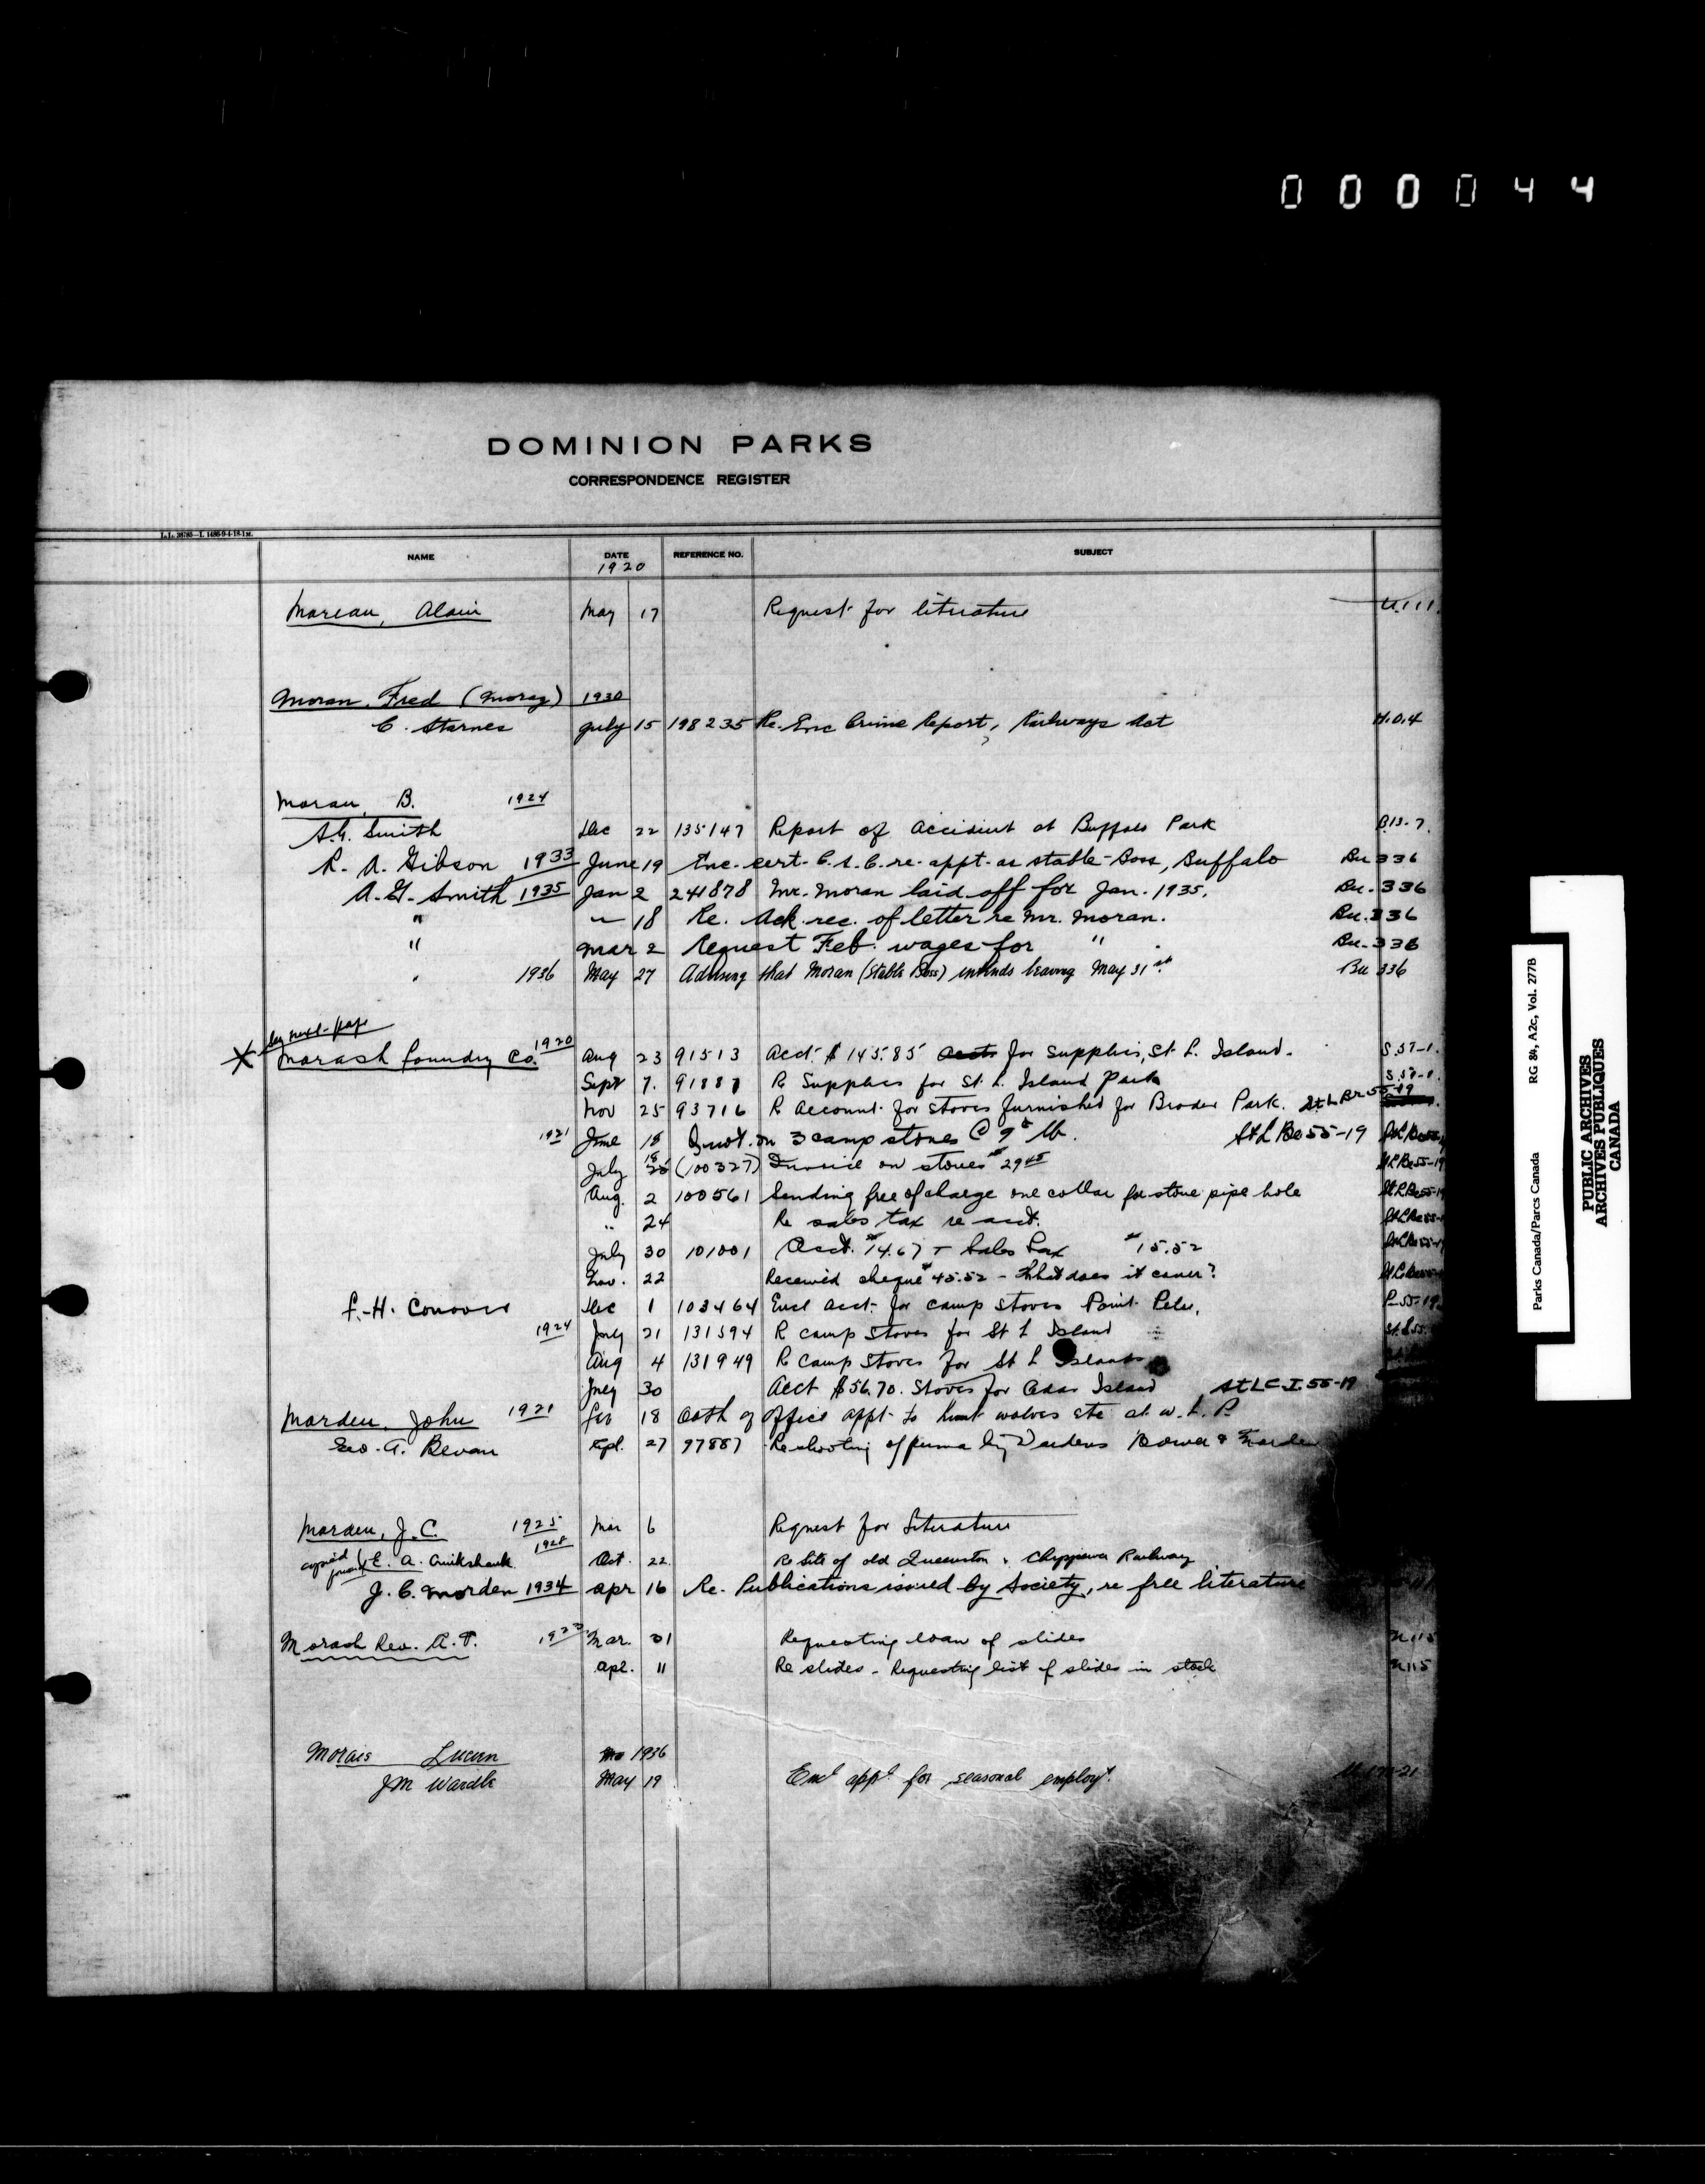 000044
DOMINION PARKS
CORRESPONDENCE REGISTER
NAME DATE REFERENCE NO. SUBJECT
1920
Moreau, Alain May 17 Request for literature U.111.
Moran, Fred (Moraz) 1930
C. Starnes July 15 198235 Re. Enc Crime Report, Railways Act H.O.4
Moran, B. 1924
A.G. Smith Dec 22 135147 Report of accident at Buffalo Park B13-7.
R. A. Gibson 1933 June 19 Enc. cert. C.S.C. re. appt. as stable-Boss, Buffalo Bu 336
A.G. Smith 1935 Jan 2 241878 Mr. Moran laid off for Jan. 1935. Bu. 336
" " 18 Re. Ack. rec. of letter re Mr. Moran. Bu. 336
" Mar 2 Request Feb. wages for " Bu. 336
" 1936 May 27 Advising that Moran (Stable Boss) intends leaving May 31st. Bu 336
next page
X Morash Foundry Co. 1920 Aug 23 91513 Acct. $145.85 for supplies, St. L. Island. S.57-1.
Sept 7. R Supplies for St. L. Island Park S.57-1.
Nov 25 93716 R Account for stoves furnished for Broder Park. St.L Br 55-19
1921 June 15 Quot. on 3 camp stoves @ 9¢ lb. St L Bo 55-19
July (100327) Invoice on stoves $29.45 St L Be 55-19
Aug. 2 100561 Sending free of charge one collar for stove pipe hole St L Be 55-19
" 24 Re sales tax re acct.
July 30 101001 Acct. $14.67 + Sales Tax $15.52
Nov. 22 Received cheque $45.52 - What does it cover?
F.-H. Conover Dec 1 103464 Encl acct. for camp stoves Point Pelee, P-55-19
1924 July 21 131594 R camp stoves for St L Island
Aug 4 131949 R camp stoves for St L Islands
July 30 Acct $56.70. Stoves for Cedar Island St L C-I. 55-19
Morden, John 1921 18 Oath of office appt. to hunt wolves etc at W. L. P.
Geo. A. Bevan Spt. 27 97887 Re shooting of by Wardens Bower &
Morden, J.C. 1925 Mar 6 Request for Literature
1928
copied E. A. Cruikshank Oct. 22 Re Site of old Queenston & Chippewa Railway
J. C. Morden 1934 Apr 16 Re. Publications issued by Society, re free literature
Morash Rev. A.T. 1923 Mar. 31 Requesting loan of slides U115
Apl. 11 Re slides - Requesting list of slides in stock U115
Morais Lucien 1936
JM Wardle May 19 Encl appn for seasonal employt.
Parks Canada/Parcs Canada RG 84, A2c, Vol. 277B
PUBLIC ARCHIVES
ARCHIVES PUBLIQUES
CANADA